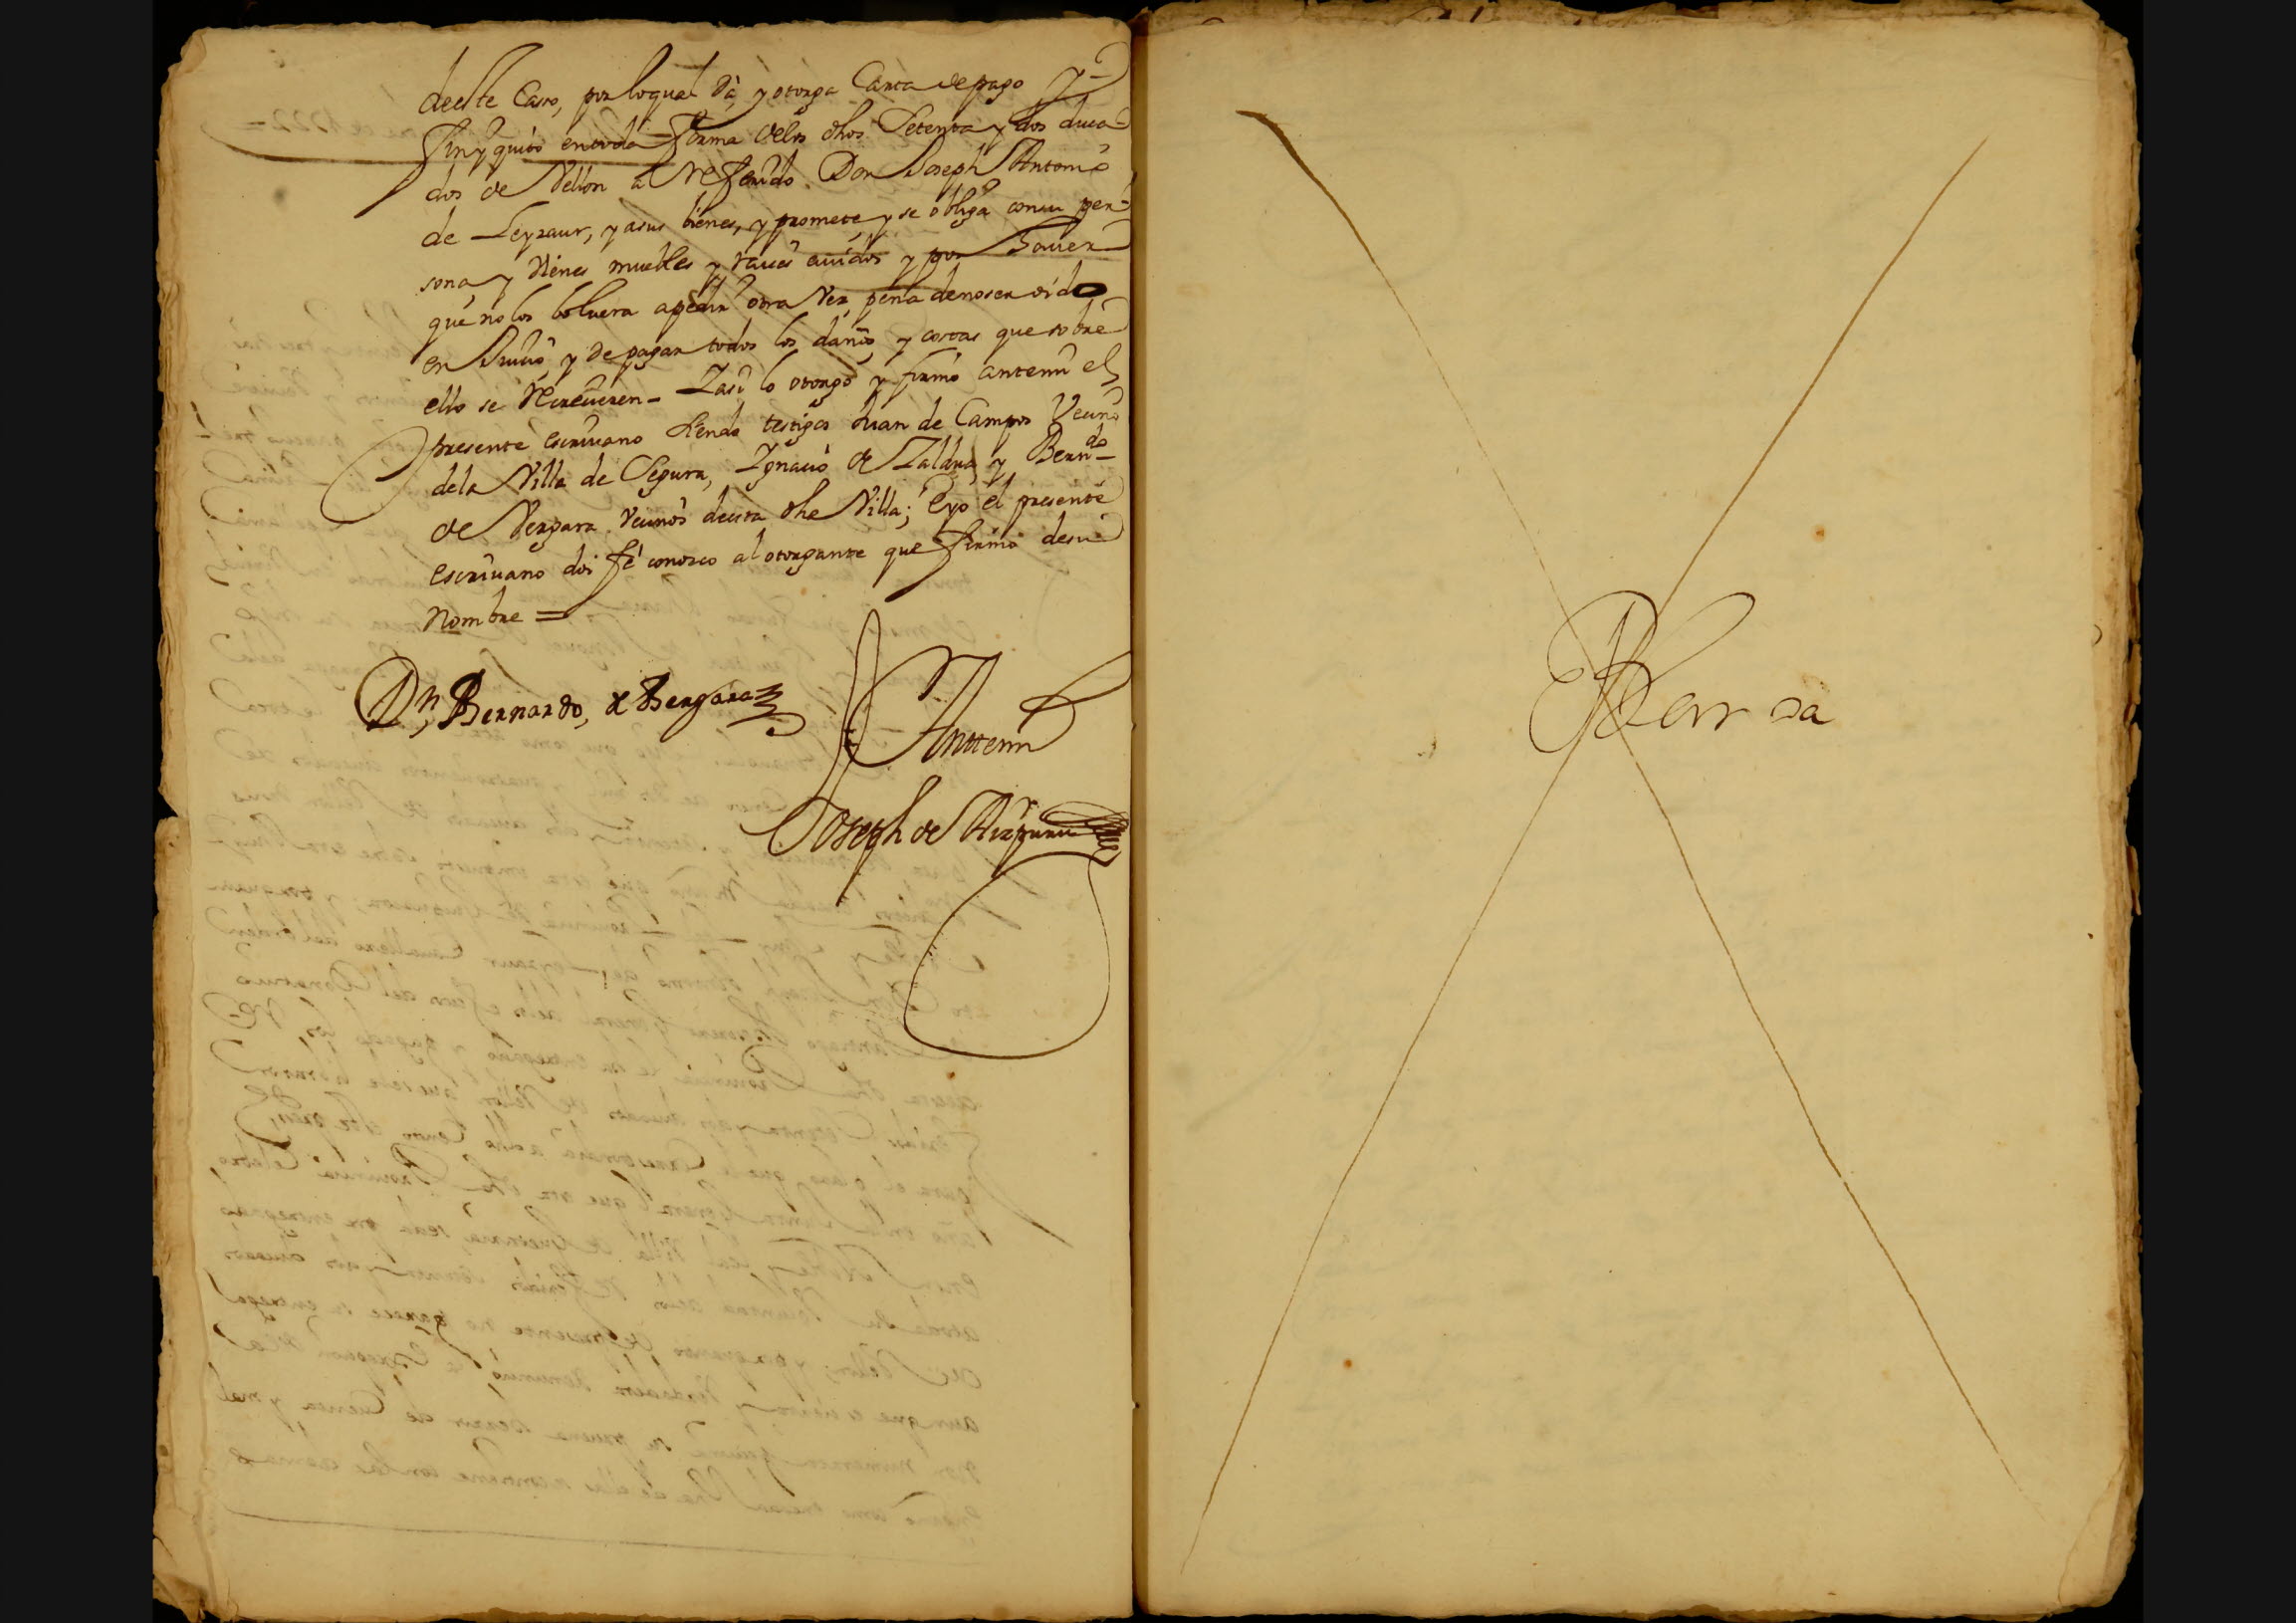 deeste Caso, por loqual Da, y otorga Carta de pago y
finyquito entoda forma delos dhos Setenta y dos duca-
dos de Vellon al Referido Don Joseph Antonio
de Leyzaur, y asus bienes, y promete, y se obliga consu per-
sona y Vienes muebles y raices auidos y por hauer
que no los boluera apedir otra Vez, pena denoser oido
en Juiçio, y de pagar todos los daños, y costas que sobre
ello se Recreçieren - Yasi lo otorgo y firmo antemi el
presente escriuano siendo testigos Juan de Campos Veçino
dela Villa de Segura, Ygnacio de Zaldua y Berndo
de Vergara Veçinos deesta dha Villa; Eyo el presente
escriuano doi fe conozco al otorgante que firmo desu
nombre =
Dn, Bernardo, de Bergara
Anttemi
Joseph de Aizpuru